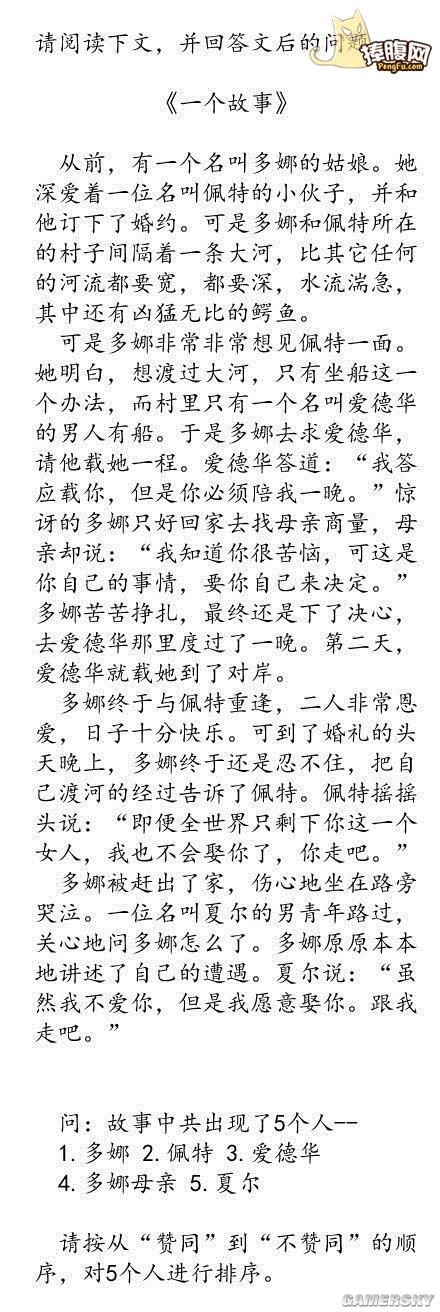 请阅读下文，并回答文后的问题
捧腹网
PengFu.com
《一个故事》
从前，有一个名叫多娜的姑娘。她
深爱着一位名叫佩特的小伙子，并和
他订下了婚约。可是多娜和佩特所在
的村子间隔着一条大河，比其它任何
的河流都要宽，都要深，水流湍急，
其中还有凶猛无比的鳄鱼。
可是多娜非常非常想见佩特一面。
她明白，想渡过大河，只有坐船这一
个办法，而村里只有一个名叫爱德华
的男人有船。于是多娜去求爱德华，
请他载她一程。爱德华答道：“我答
应载你，但是你必须陪我一晚。”惊
讶的多娜只好回家去找母亲商量，母
亲却说：“我知道你很苦恼，可这是
你自己的事情，要你自己来决定。”
多娜苦苦挣扎，最终还是下了决心，
去爱德华那里度过了一晚。第二天，
爱德华就载她到了对岸。
多娜终于与佩特重逢，二人非常恩
爱，日子十分快乐。可到了婚礼的头
天晚上，多娜终于还是忍不住，把自
己渡河的经过告诉了佩特。佩特摇摇
头说：“即便全世界只剩下你这一个
女人，我也不会娶你了，你走吧。”
多娜被赶出了家，伤心地坐在路旁
哭泣。一位名叫夏尔的男青年路过，
关心地问多娜怎么了。多娜原原本本
地讲述了自己的遭遇。夏尔说：“虽
然我不爱你，但是我愿意娶你。跟我
走吧。”
问：故事中共出现了5个人--
1.多娜 2.佩特 3.爱德华
4.多娜母亲 5.夏尔
请按从“赞同”到“不赞同”的顺
序，对5个人进行排序。
GAMERSKY